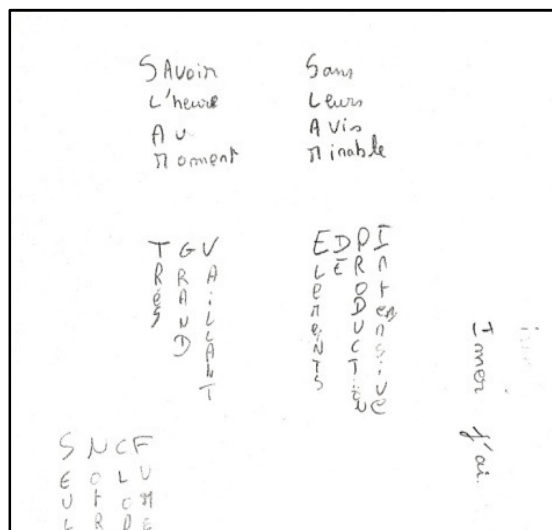 SAvoir
L'heure
AU
Moment
Sans
Leurs
AVis
Minable
TRèS
GRAND
VAiLLANT
ELemeNTS
DE
PRODUCTiON
Intensive
j'ai
SEUL
NOtR
CLOD
FUME